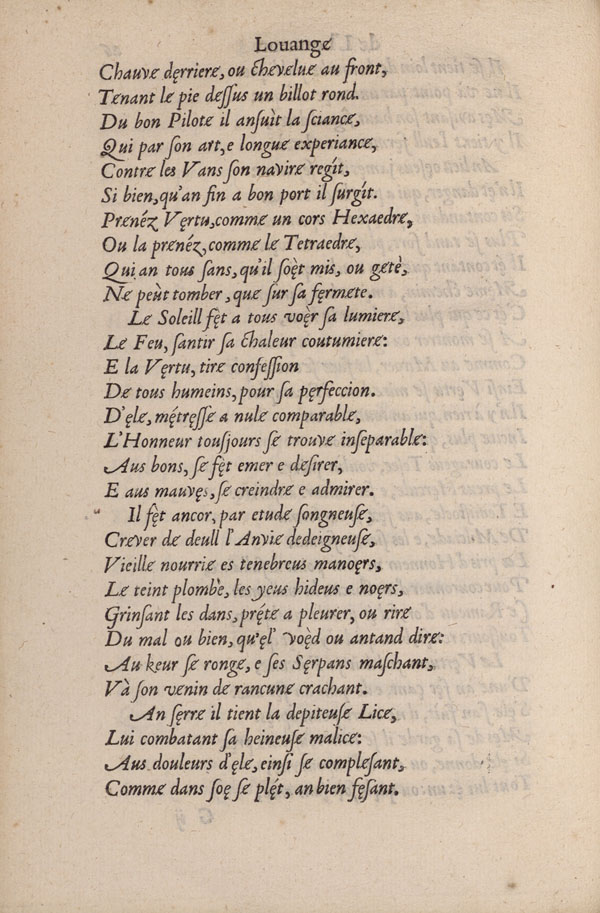 Louange
Chauve dęrriere, ou chevelue au front,
Tenant le pie deſſus un billot rond.
Du bon Pilote il anſuìt la ſciance,
Qui par ſon art, e longue experiance,
Contre les Vans ſon navire regít,
Si bien, qu'an fin a bon port il ſurgìt.
Prenéz Vęrtu, comme un cors Hexaedre,
Ou la prenéz, comme le Tetraedre,
Qui an tous ſans, qu'il ſoęt mis, ou getè,
Ne peùt tomber, que ſur ſa fęrmete.
Le Soleill fęt a tous voęr ſa lumiere,
Le Feu, ſantir ſa chaleur coutumiere:
E la Vęrtu, tire confeſſion
De tous humeins, pour ſa pęrfeccion.
D'ęle, métręſſe a nule comparable,
L'Honneur touſjours ſe trouve inſeparable:
Aus bons, ſe fęt emer e deſirer,
E aus mauvęs, ſe creindre e admirer.
Il fęt ancor, par etude ſongneuſe,
Crever de deull l'Anvie dedeigneuſe,
Vieille nourrie es tenebreus manoęrs,
Le teint plombè, les yeus hideus e noęrs,
Grinſant les dans, préte a pleurer, ou rire
Du mal ou bien, qu'ęl' voęd ou antand dire:
Au keur ſe ronge, e ſes Sęrpans maſchant,
Và ſon venin de rancune crachant.
An ſęrre il tient la depiteuſe Lice,
Lui combatant ſa heineuſe malice:
Aus douleurs d'ęle, einſi ſe compleſant,
Comme dans ſoę ſe plęt, an bien feſant.